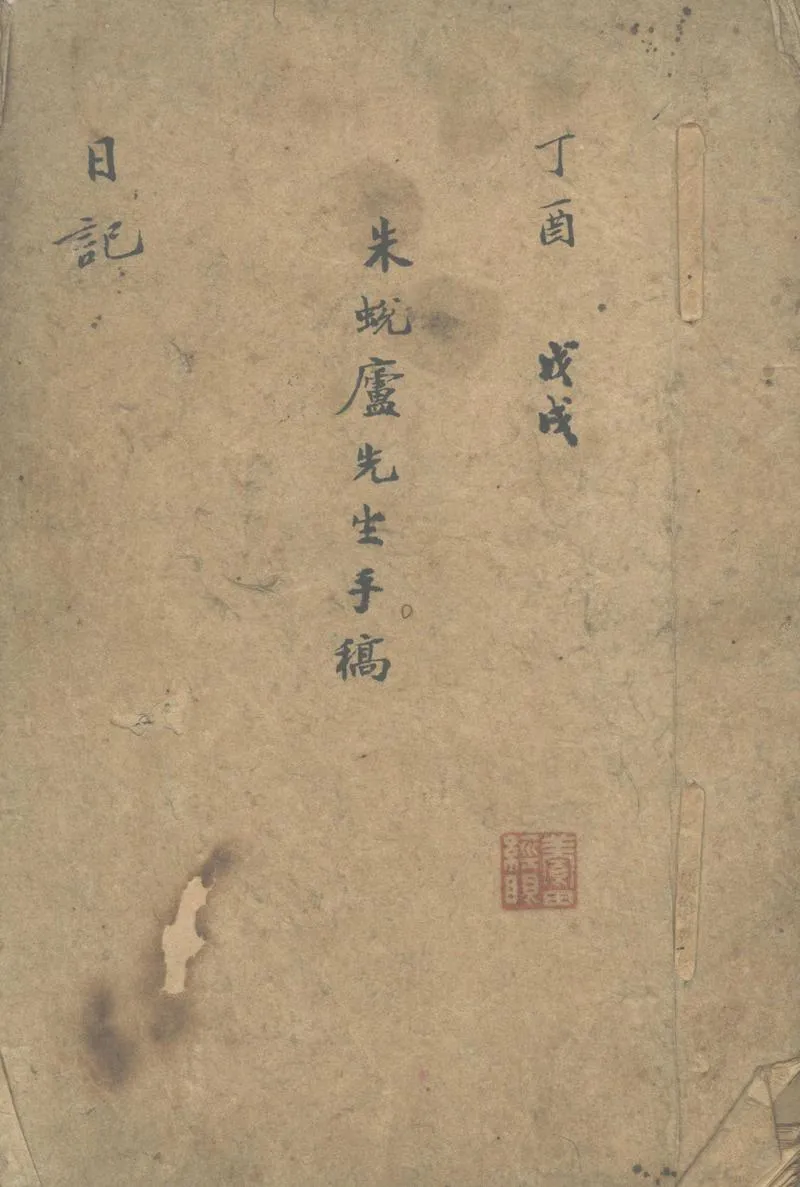 丁酉 戊戌
朱蛻廬先生手稿
日記